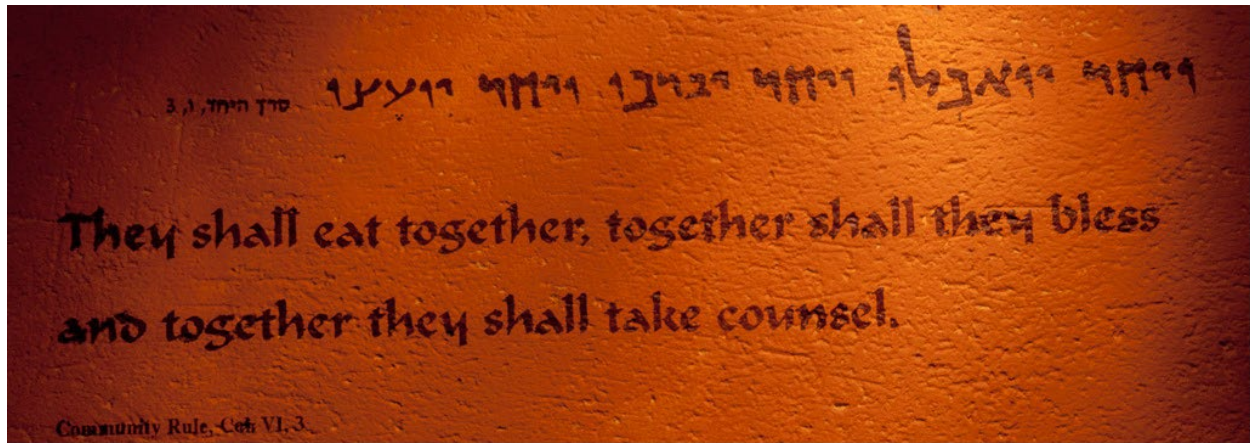 ויחד יואכלו ויחד יברכו ויחד יועצו סרך היחד, ו, 3
They shall eat together, together shall they bless
and together they shall take counsel.
Community Rule, Col. VI, 3